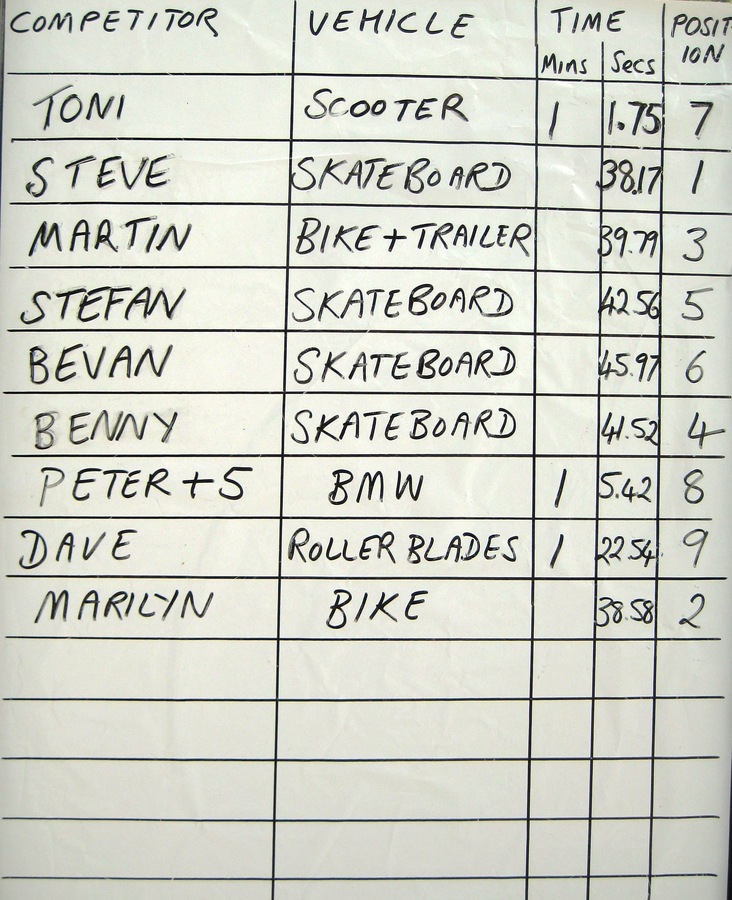 COMPETITOR VEHICLE TIME POSIT
Mins Secs ION
TONI SCOOTER 1 1.75 7
STEVE SKATEBOARD 38.17 1
MARTIN BIKE + TRAILER 39.79 3
STEFAN SKATEBOARD 42.56 5
BEVAN SKATEBOARD 45.97 6
BENNY SKATEBOARD 41.52 4
PETER + 5 BMW 1 5.42 8
DAVE ROLLER BLADES 1 22.54 9
MARILYN BIKE 38.58 2